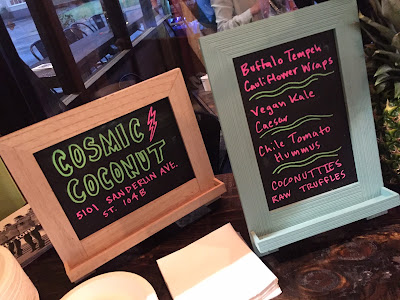 COSMIC
COCONUT
5101 SANDERLIN AVE.
ST. 104B
Buffalo Tempeh
Cauliflower Wraps
Vegan Kale
Caesar
Chile Tomato
Hummus
COCONUTTIES
RAW TRUFFLES